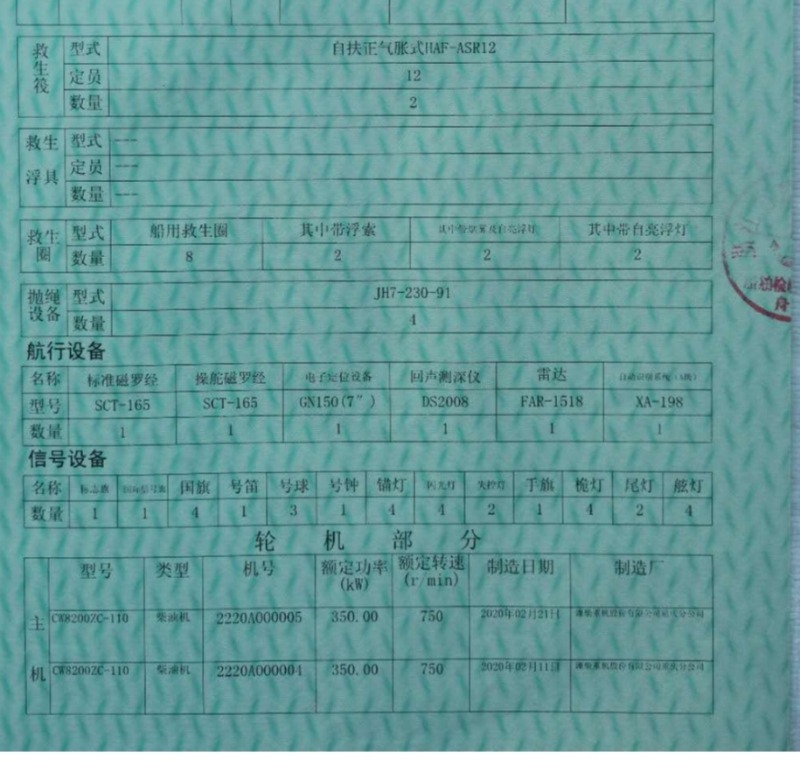 救生筏
型式 自扶正气胀式HAF-ASR12
定员 12
数量 2
救生浮具
型式 ---
定员 ---
数量 ---
救生圈
型式 船用救生圈 其中带浮索 其中带烟雾及自亮浮灯 其中带自亮浮灯
数量 8 2 2 2
抛绳设备
型式 JH7-230-91
数量 4
航行设备
名称 标准磁罗经 操舵磁罗经 电子定位设备 回声测深仪 雷达 自动识别系统(A级)
型号 SCT-165 SCT-165 GN150(7″) DS2008 FAR-1518 XA-198
数量 1 1 1 1 1 1
信号设备
名称 标志旗 国际信号旗 国旗 号笛 号球 号钟 锚灯 闪光灯 失控灯 手旗 桅灯 尾灯 舷灯
数量 1 1 4 1 3 1 4 4 2 1 4 2 4
轮机部分
型号 类型 机号 额定功率(kW) 额定转速(r/min) 制造日期 制造厂
主机
CW8200ZC-110 柴油机 2220A000005 350.00 750 2020年02月21日 潍柴重机股份有限公司重庆分公司
CW8200ZC-110 柴油机 2220A000004 350.00 750 2020年02月11日 潍柴重机股份有限公司重庆分公司